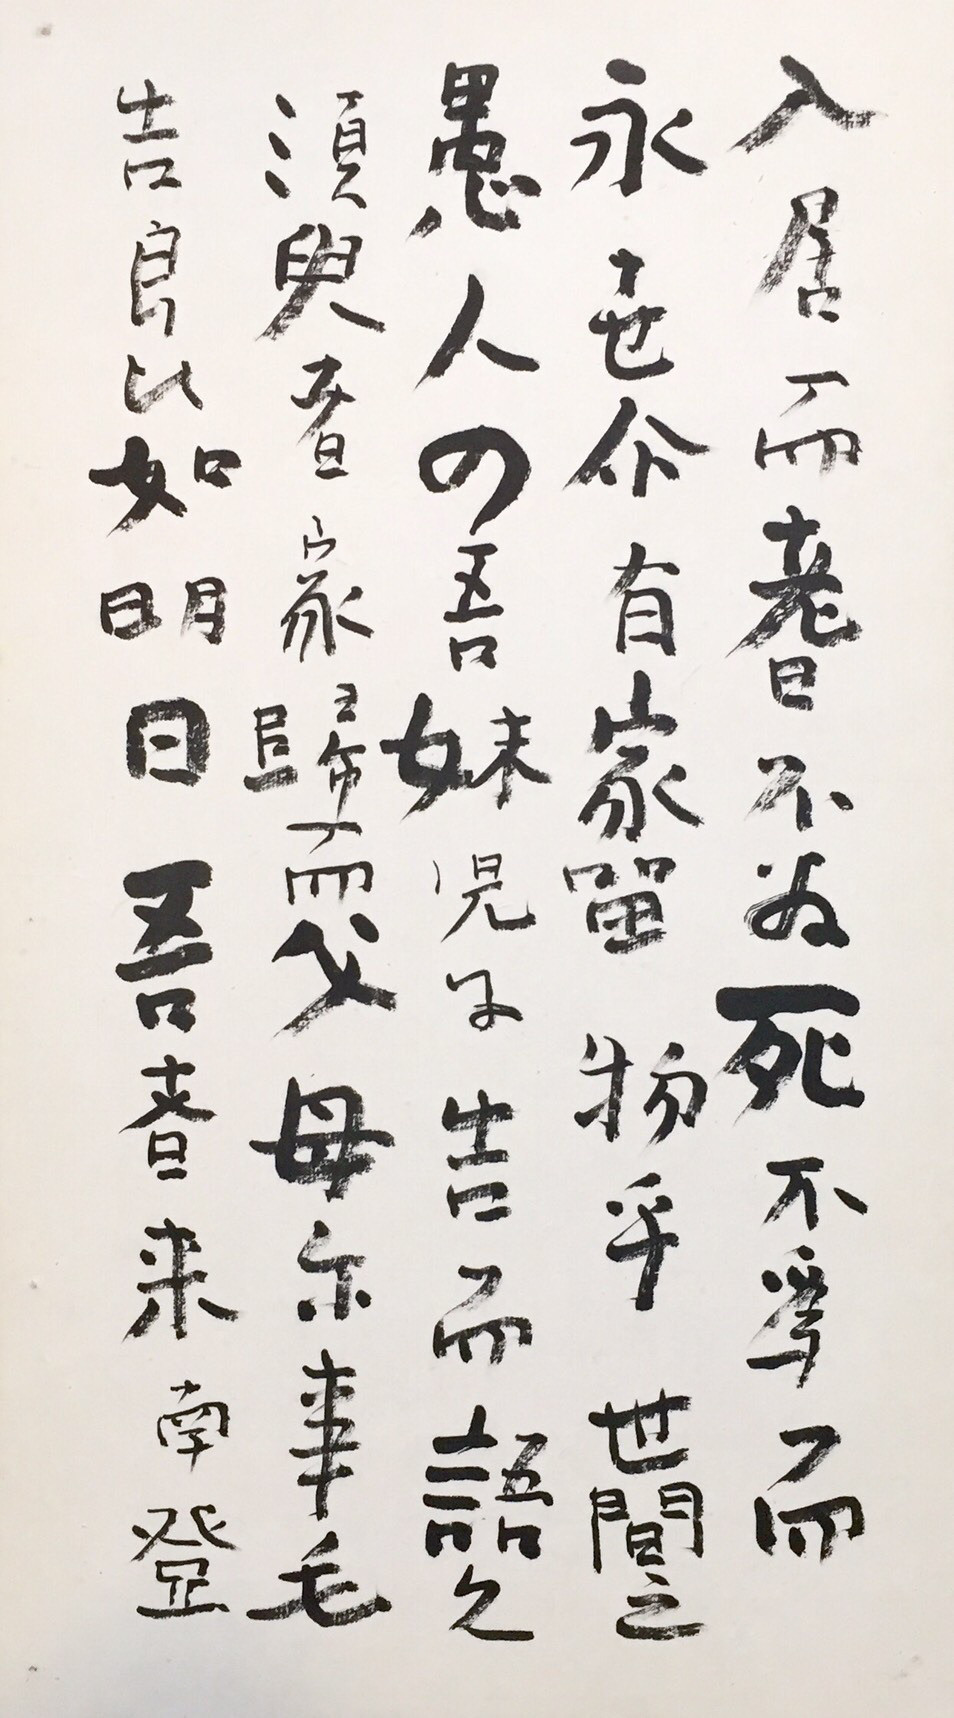 入居而耆不為死不爲而
永世尓有家留物乎世間之
愚人の吾妹児尓告而語久
須臾者家歸而父母尓事毛
告良比如明日吾者来南登